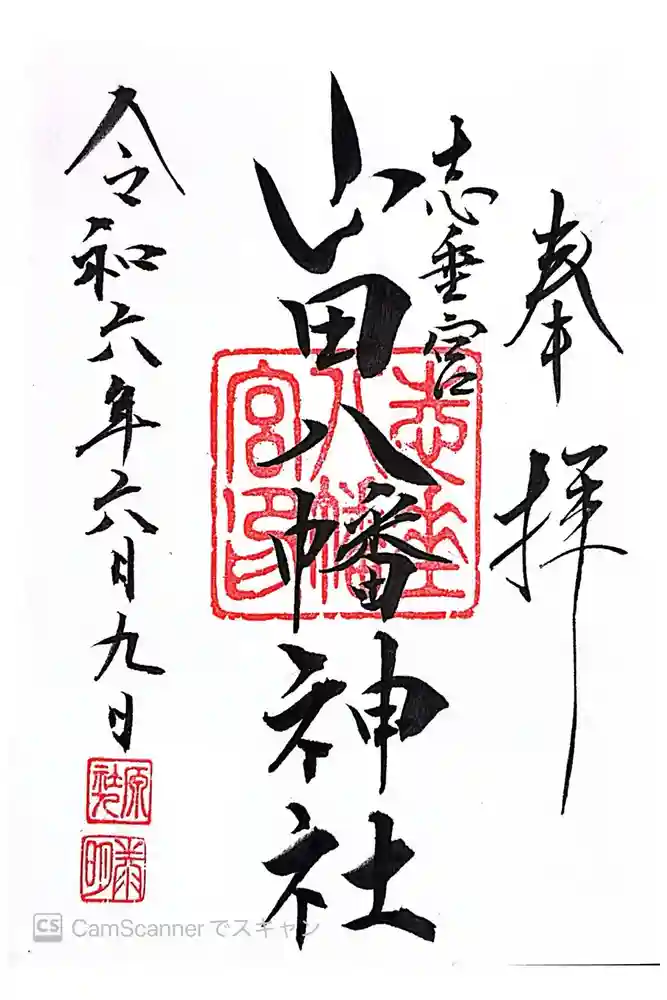 奉拝
志垂宮
山田八幡神社
志垂八幡宮印
令和六年六月九日
CS CamScannerでスキャン